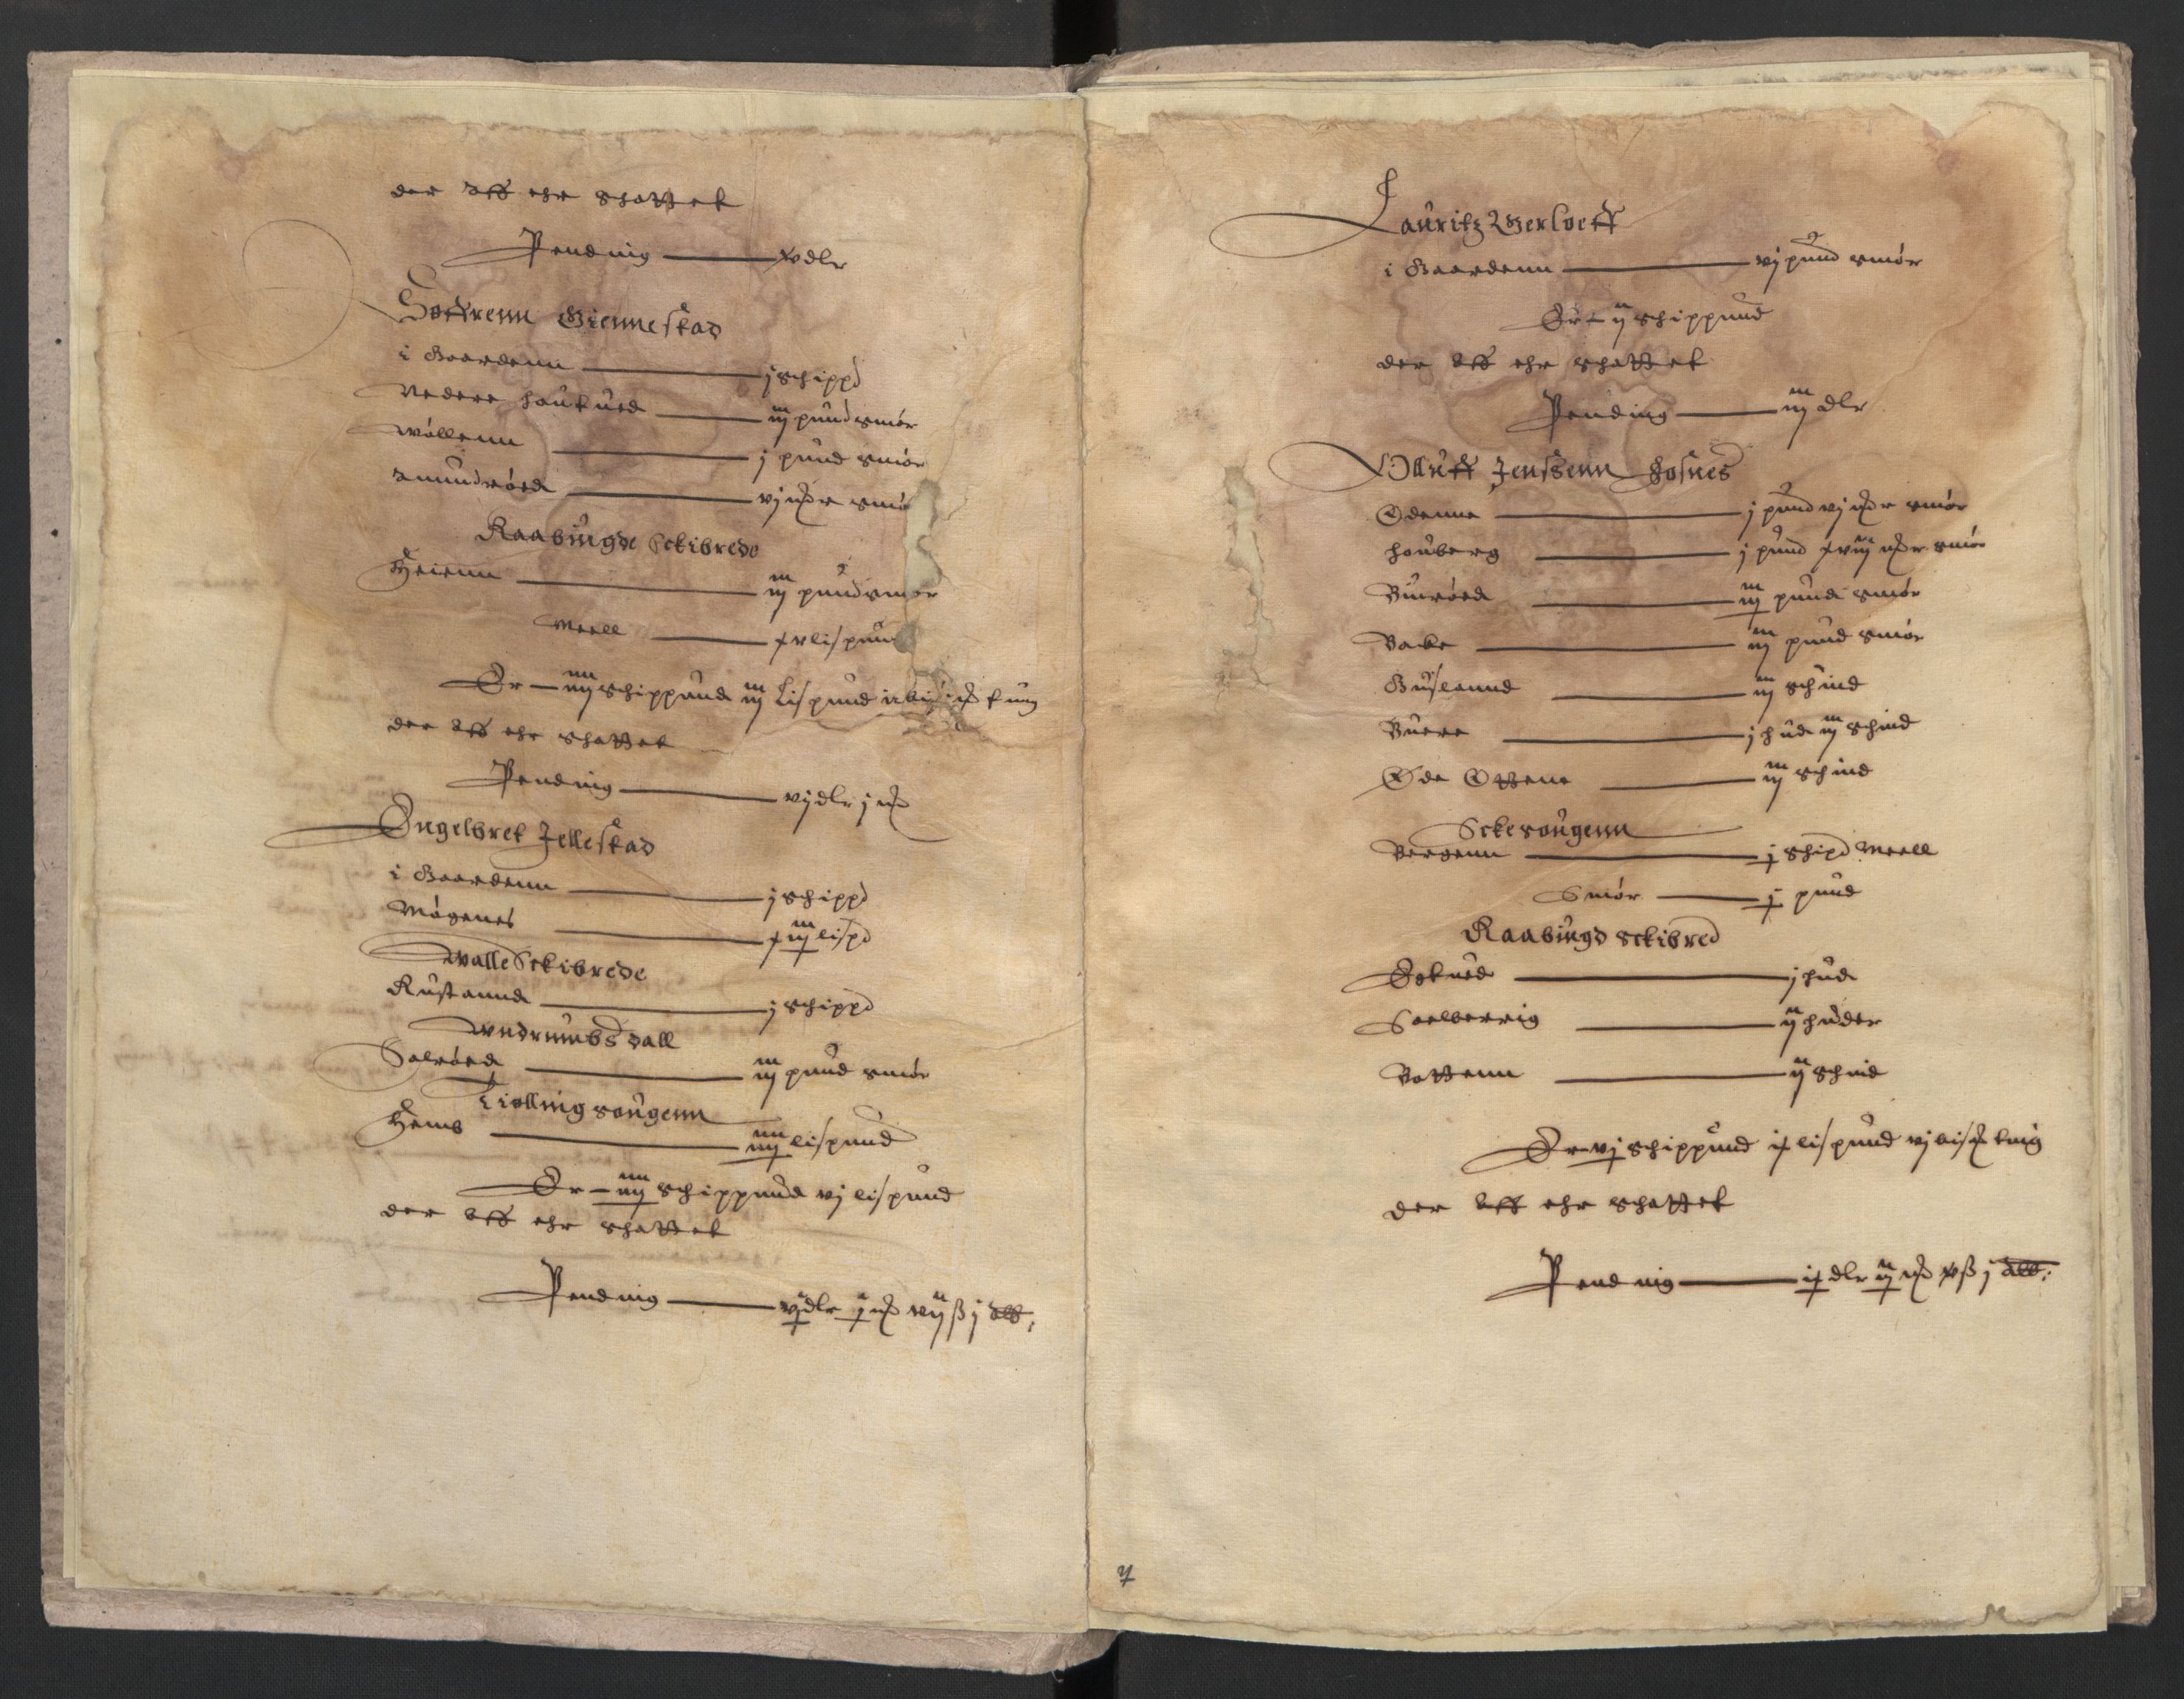 der aff ehr schattet
Pending — xv dlr
Soffrenn Gienneskad
i Gaardenn — j schippd
Nedere Haukued — iij pund smör
Wöllenn — j pund smör
Amundröed — vj mrk smör
Raabÿngde Sckibrede
Heienn — iij pund smör
Meell — xv lispund
Er — iiij schippund iij Lispund
der aff ehr schattet
Pending — vj dlr j mrk
Engelbret Jelleskad
i Gaardenn — j schippd
Mögenes — xiij lispd
Walle Sckibrede
Rustannd — j schippd
Wndrumbs dall
Solröed — iij pund smör
Tiölling sougenn
Hems — iiij lispund
Er — iiij schippund vj lispund
der aff ehr schattet
Pending — vij dlr j mrk vij ß j alb:
Lauritz Werloeff
i Gaardenn — vj pund smör
Er — ij schippund
der aff ehr schattet
Pending — iij dlr
Olluff Jenssenn Fosnes
Ödenne — j pund vj mrk smör
Houberg — j pund xviij mrk smör
Buröed — iij pund smör
Backe — iij pund smör
Guslannd — iij schind
Buere — j hud iij schind
Öde Ottene — iij schind
Sckesougenn
Bergenn — j shipd Meell
Smör — j pund
Raabÿngd sckibred
Eskued — j hud
Soelberrig — ij huder
Bottenn — ij schind
Er — vj schippund ix lispund vj bismrk tung
der aff ehr schattet
Pending — ix dlr ij mrk xv ß j alb:
7